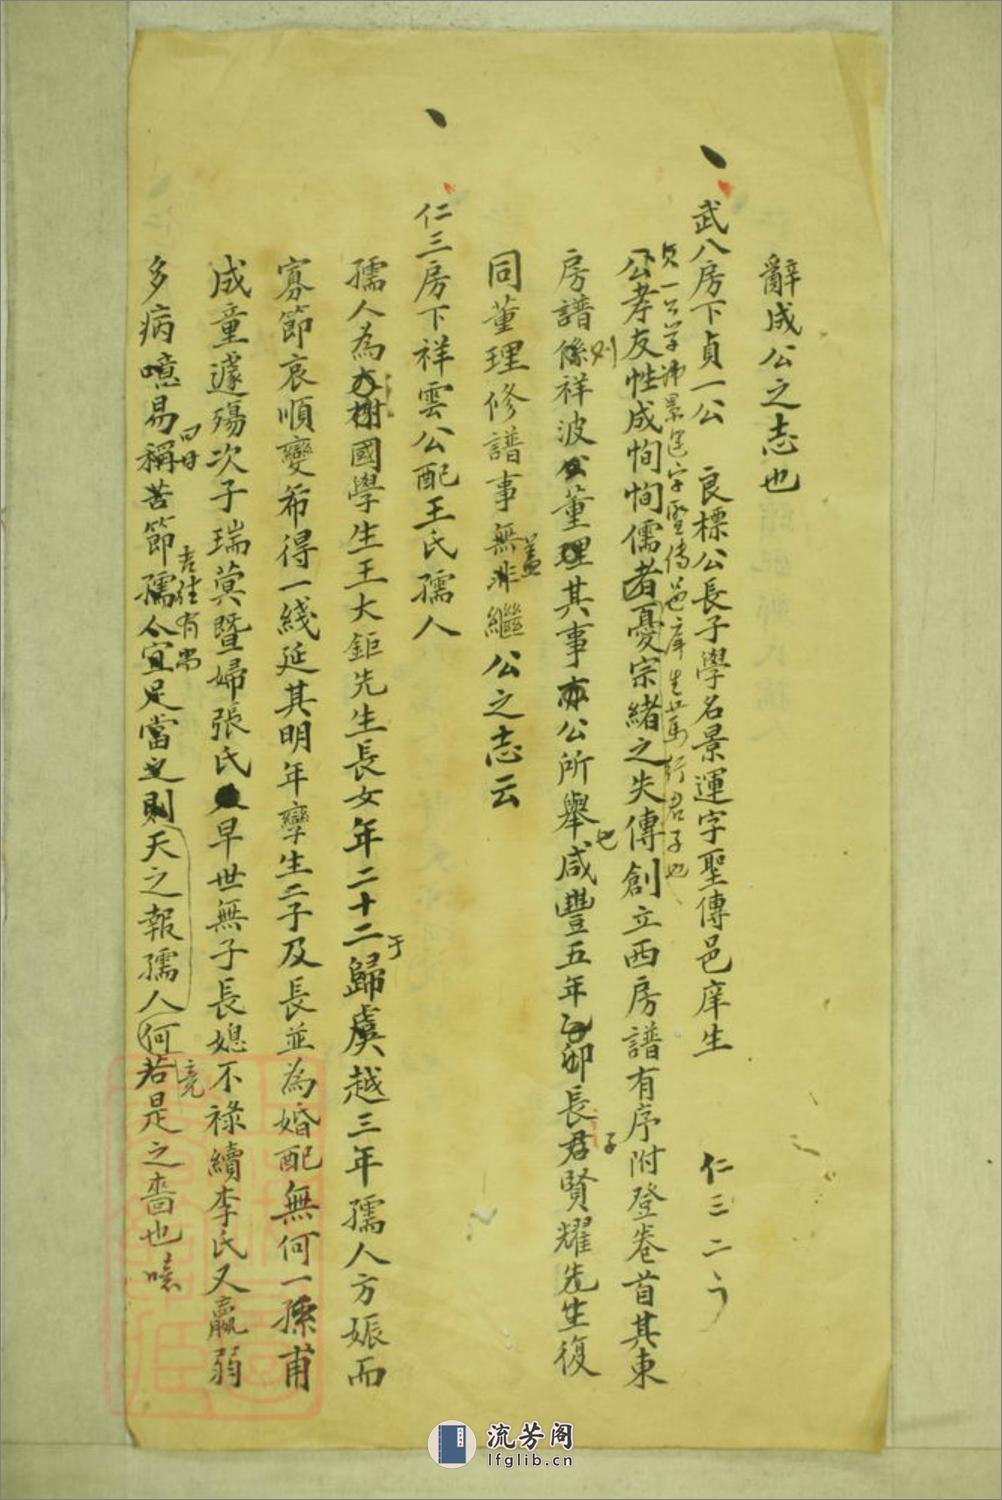 辭成公之志也
武八房下貞一公　良標公長子學名景運字聖傳邑庠生　仁三二
貞一公學諱景運字聖傳邑庠生篤行君子也
公孝友性成恂恂儒者憂宗緒之失傳創立西房譜有序附登卷首其東
房譜係則祥波公董理其事亦公所舉也咸豐五年乙卯長君子賢耀先生復
同董理修譜事無非蓋繼公之志云
仁三房下祥雲公配王氏孺人
孺人為榭國學生王大鉅先生長女年二十二歸于虞越三年孺人方娠而
寡節哀順變希得一綫延其明年孿生二子及長並為婚配無何一孫甫
成童遽殤次子瑞蓂暨婦張氏早世無子長媳不祿續李氏又羸弱
多病噫易稱曰苦節孺人宜足當之則天之報孺人何竟若是之嗇也噫
流芳阁
lfglib.cn